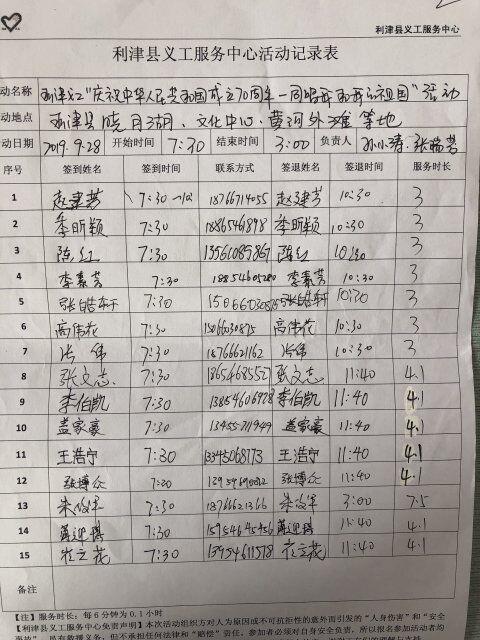 利津县义工服务中心
利津县义工服务中心活动记录表
动名称 利津义工"庆祝中华人民共和国成立70周年一同唱开和开的祖国"活动
动地点 利津县晓月湖、文化中心、黄河外滩等地
动日期 2019.9.28 开始时间 7:30 结束时间 3:00 负责人 孙小涛 张瑞芳
序号 签到姓名 签到时间 联系方式 签退姓名 签退时间 服务时长
1 赵建芳 7:30 18766714055 赵建芳 10:30 3
2 季明颖 7:30 18865461898 季明颖 10:30 3
3 陈红 7:30 13561089867 陈红 10:30 3
4 李素芳 7:30 18854605280 李素芳 10:30 3
5 张皓轩 7:30 张皓轩 10:30 3
6 高伟花 7:30 15066030875 高伟花 10:30 3
7 洪伟 7:30 18766621162 洪伟 10:30 3
8 张文志 7:30 张文志 11:40 4.1
9 李伯凯 7:30 13854606928 李伯凯 11:40 4.1
10 盖家豪 7:30 13455711949 盖家豪 11:40 4.1
11 王浩宁 7:30 13345068773 王浩宁 11:40 4.1
12 张博众 7:20 张博众 11:40 4.1
13 朱俊军 7:30 18766621366 朱俊军 3:00 7.5
14 7:30 11:40 4.1
15 崔立花 7:30 13954611578 崔立花 11:40 4.1
备注
【注】服务时长:每6分钟为0.1小时
【利津县义工服务中心免责声明】本次活动组织方对人为原因或不可抗拒性的意外而引发的"人身伤害"和"安全